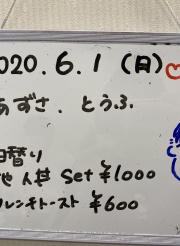 2020.6.1(日)
あずさ.とうふ
日替り
他人丼 Set ¥1000
フレンチトースト ¥600